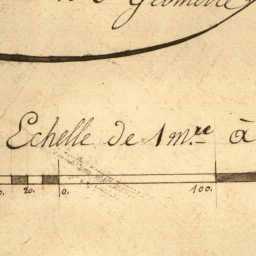 Géomètre
Echelle de 1 m.re à
20. 0. 100.